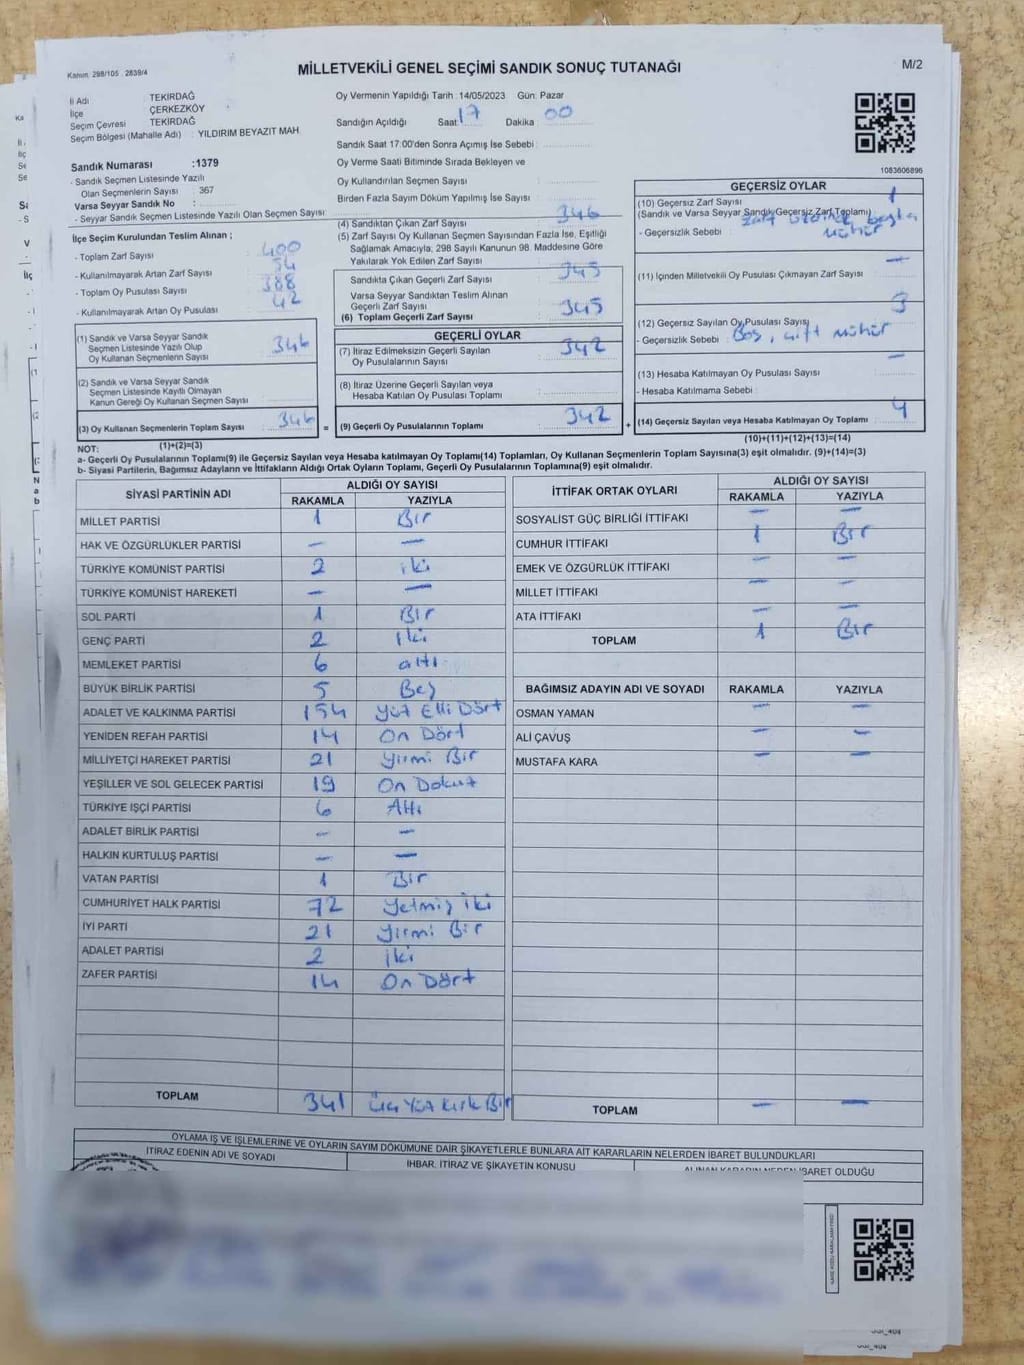 Kanun 298/105 . 2839/4
MİLLETVEKİLİ GENEL SEÇİMİ SANDIK SONUÇ TUTANAĞI
M/2
İl Adı TEKİRDAĞ
İlçe ÇERKEZKÖY
Seçim Çevresi TEKİRDAĞ
Seçim Bölgesi (Mahalle Adı) : YILDIRIM BEYAZIT MAH.
Sandık Numarası :1379
- Sandık Seçmen Listesinde Yazılı
Olan Seçmenlerin Sayısı : 367
Varsa Seyyar Sandık No :
- Seyyar Sandık Seçmen Listesinde Yazılı Olan Seçmen Sayısı
Oy Vermenin Yapıldığı Tarih : 14/05/2023 Gün: Pazar
Sandığın Açıldığı Saat 17 Dakika : 00
Sandık Saat 17:00'den Sonra Açımış İse Sebebi :
Oy Verme Saati Bitiminde Sırada Bekleyen ve
Oy Kullandırılan Seçmen Sayısı
Birden Fazla Sayım Döküm Yapılmış İse Sayısı
1083606896
İlçe Seçim Kurulundan Teslim Alınan ;
- Toplam Zarf Sayısı : 400
- Kullanılmayarak Artan Zarf Sayısı : 54
- Toplam Oy Pusulası Sayısı : 388
- Kullanılmayarak Artan Oy Pusulası : 42
(1) Sandık ve Varsa Seyyar Sandık
Seçmen Listesinde Yazılı Olup
Oy Kullanan Seçmenlerin Sayısı : 346
(2) Sandık ve Varsa Seyyar Sandık
Seçmen Listesinde Kayıtlı Olmayan
Kanun Gereği Oy Kullanan Seçmen Sayısı
(3) Oy Kullanan Seçmenlerin Toplam Sayısı : 346
(4) Sandıktan Çıkan Zarf Sayısı : 346
(5) Zarf Sayısı Oy Kullanan Seçmen Sayısından Fazla İse, Eşitliği
Sağlamak Amacıyla, 298 Sayılı Kanunun 98. Maddesine Göre
Yakılarak Yok Edilen Zarf Sayısı
Sandıkta Çıkan Geçerli Zarf Sayısı : 345
Varsa Seyyar Sandıktan Teslim Alınan
Geçerli Zarf Sayısı
(6) Toplam Geçerli Zarf Sayısı : 345
GEÇERLİ OYLAR
(7) İtiraz Edilmeksizin Geçerli Sayılan : 342
Oy Pusulalarının Sayısı
(8) İtiraz Üzerine Geçerli Sayılan veya
Hesaba Katılan Oy Pusulası Toplamı
= (9) Geçerli Oy Pusulalarının Toplamı : 342 +
GEÇERSİZ OYLAR
(10) Geçersiz Zarf Sayısı 1
(Sandık ve Varsa Seyyar Sandık Geçersiz Zarf Toplamı)
- Geçersizlik Sebebi : Zarf üzerinde başka mühür
(11) İçinden Milletvekili Oy Pusulası Çıkmayan Zarf Sayısı —
(12) Geçersiz Sayılan Oy Pusulası Sayısı 3
- Geçersizlik Sebebi : Boş, çift mühür
(13) Hesaba Katılmayan Oy Pusulası Sayısı —
- Hesaba Katılmama Sebebi
(14) Geçersiz Sayılan veya Hesaba Katılmayan Oy Toplamı : 4
(10)+(11)+(12)+(13)=(14)
NOT: (1)+(2)=(3)
a- Geçerli Oy Pusulalarının Toplamı(9) ile Geçersiz Sayılan veya Hesaba katılmayan Oy Toplamı(14) Toplamları, Oy Kullanan Seçmenlerin Toplam Sayısına(3) eşit olmalıdır. (9)+(14)=(3)
b- Siyasi Partilerin, Bağımsız Adayların ve İttifakların Aldığı Ortak Oyların Toplamı, Geçerli Oy Pusulalarının Toplamına(9) eşit olmalıdır.
SİYASİ PARTİNİN ADI ALDIĞI OY SAYISI
RAKAMLA YAZIYLA
MİLLET PARTİSİ 1 Bir
HAK VE ÖZGÜRLÜKLER PARTİSİ — —
TÜRKİYE KOMÜNİST PARTİSİ 2 iki
TÜRKİYE KOMÜNİST HAREKETİ — —
SOL PARTİ 1 Bir
GENÇ PARTİ 2 iki
MEMLEKET PARTİSİ 6 altı
BÜYÜK BİRLİK PARTİSİ 5 Beş
ADALET VE KALKINMA PARTİSİ 154 Yüz Elli Dört
YENİDEN REFAH PARTİSİ 14 On Dört
MİLLİYETÇİ HAREKET PARTİSİ 21 Yirmi Bir
YEŞİLLER VE SOL GELECEK PARTİSİ 19 On Dokuz
TÜRKİYE İŞÇİ PARTİSİ 6 Altı
ADALET BİRLİK PARTİSİ — —
HALKIN KURTULUŞ PARTİSİ — —
VATAN PARTİSİ 1 Bir
CUMHURİYET HALK PARTİSİ 72 Yetmiş iki
İYİ PARTİ 21 Yirmi Bir
ADALET PARTİSİ 2 iki
ZAFER PARTİSİ 14 On Dört
TOPLAM 341 Üç Yüz Kırk Bir
İTTİFAK ORTAK OYLARI ALDIĞI OY SAYISI
RAKAMLA YAZIYLA
SOSYALİST GÜÇ BİRLİĞİ İTTİFAKI — —
CUMHUR İTTİFAKI 1 Bir
EMEK VE ÖZGÜRLÜK İTTİFAKI — —
MİLLET İTTİFAKI — —
ATA İTTİFAKI — —
TOPLAM 1 Bir
BAĞIMSIZ ADAYIN ADI VE SOYADI RAKAMLA YAZIYLA
OSMAN YAMAN — —
ALİ ÇAVUŞ — —
MUSTAFA KARA — —
TOPLAM — —
OYLAMA İŞ VE İŞLEMLERİNE VE OYLARIN SAYIM DÖKÜMÜNE DAİR ŞİKAYETLERLE BUNLARA AİT KARARLARIN NELERDEN İBARET BULUNDUKLARI
İTİRAZ EDENİN ADI VE SOYADI
İHBAR, İTİRAZ VE ŞİKAYETİN KONUSU
ALINAN KARARIN NEDEN İBARET OLDUĞU